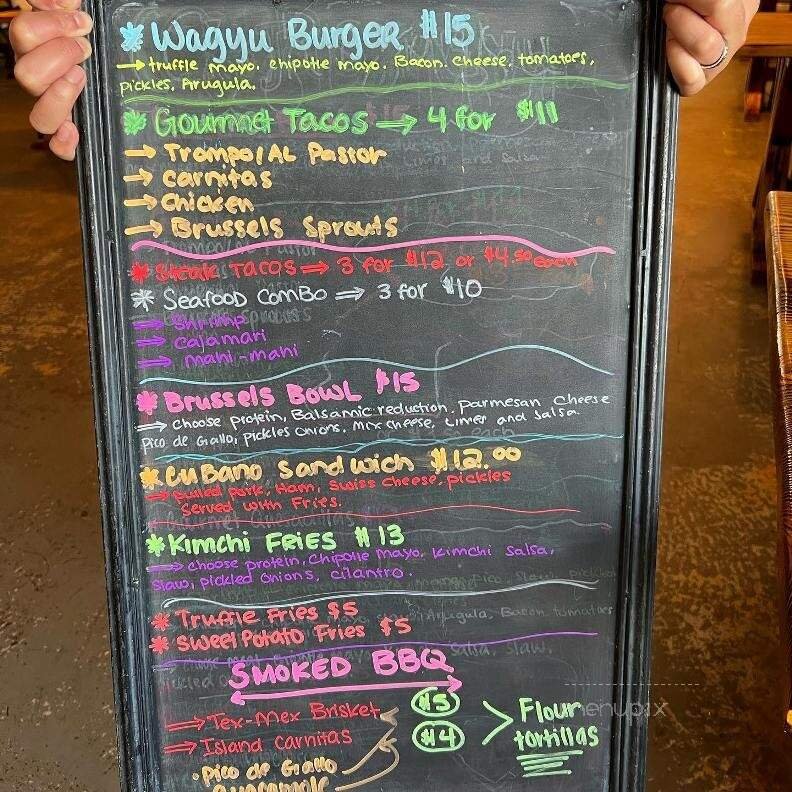 * Wagyu Burger $15
→ truffle mayo. chipotle mayo. Bacon. cheese. tomatoes,
pickles, Arugula.
* Gourmet Tacos → 4 for $11
→ Trompo/AL Pastor
→ Carnitas
→ Chicken
→ Brussels Sprouts
* Steak Tacos → 3 for $12 or $4.50 each
* Seafood Combo → 3 for $10
→ Shrimp
→ calamari
→ mahi-mahi
* Brussels Bowl $15
→ choose protein, Balsamic reduction. parmesan cheese
Pico de Gallo, pickles onions. Mix cheese, Limes and salsa
* Cubano Sandwich $12.00
→ pulled pork, Ham, Swiss cheese, pickles
Served with Fries.
* Kimchi Fries $13
→ choose protein, Chipotle mayo, Kimchi Salsa,
Slaw, pickled onions, cilantro.
* Truffle Fries $5
* Sweet Potato Fries $5
SMOKED BBQ
→ Tex-Mex Brisket $5
→ Island Carnitas $4
> Flour
tortillas
• Pico de Gallo
Guacamole
menupix